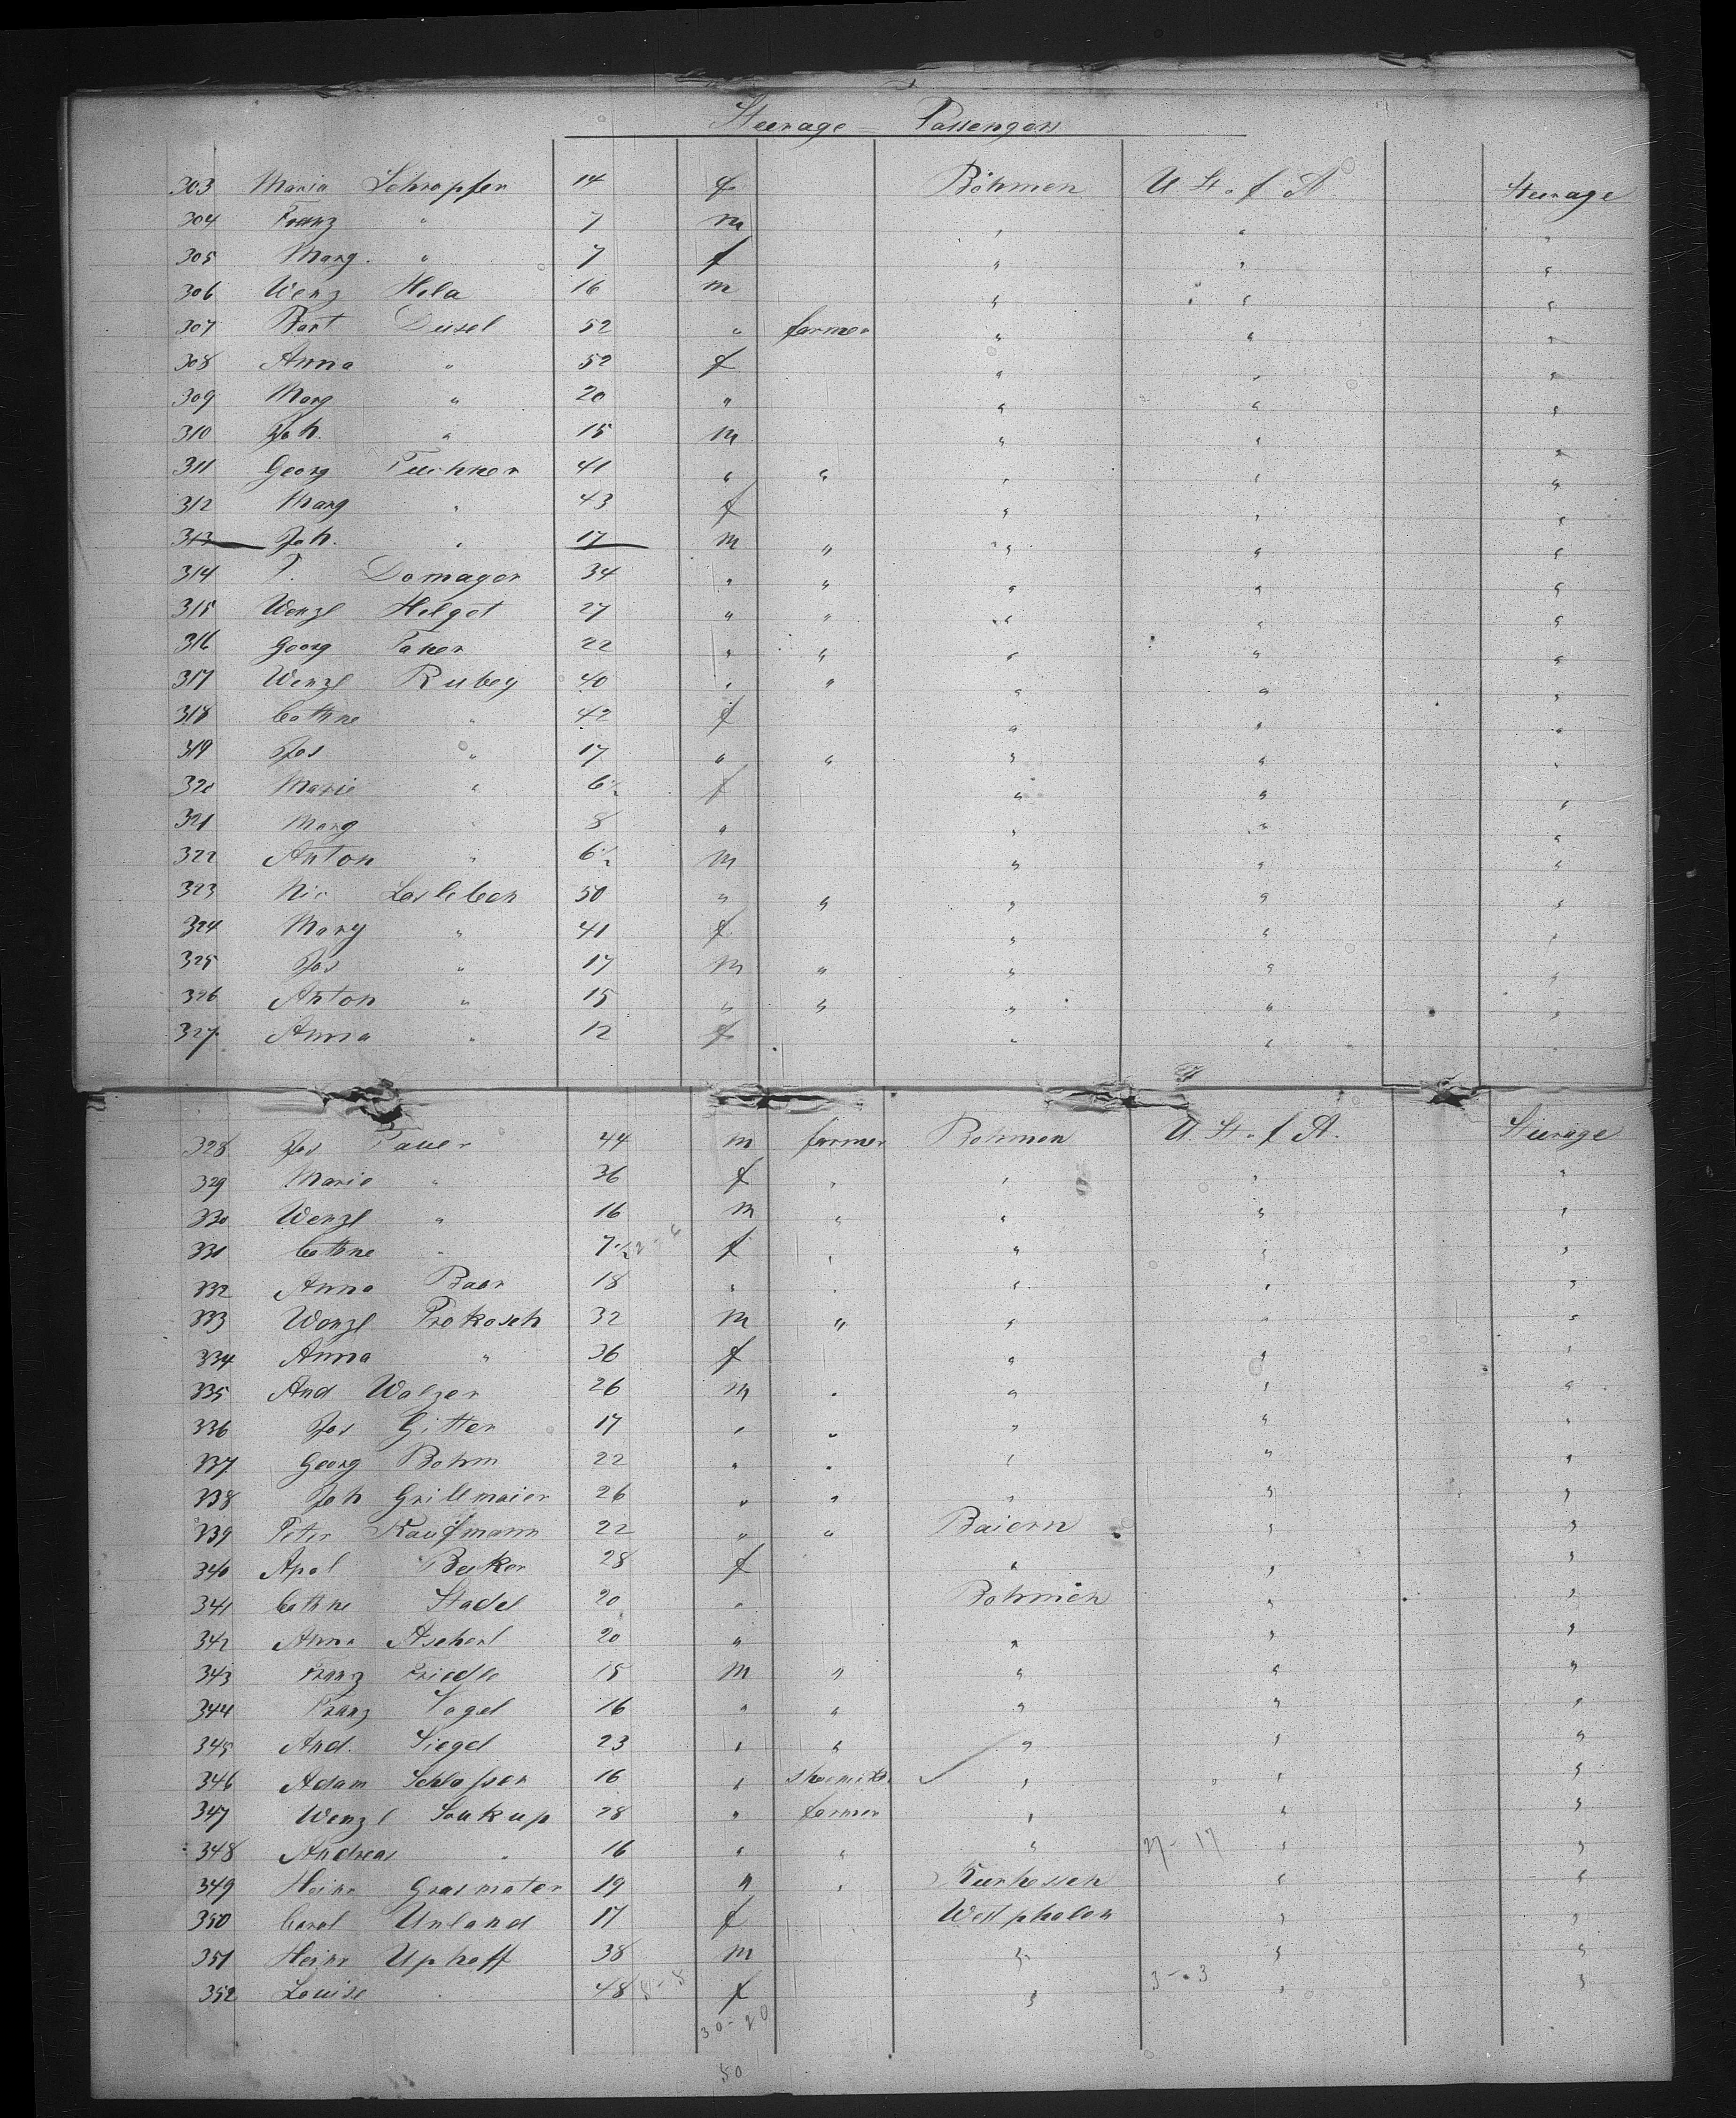 Steerage = Passengers
303 Maria Schropfer 14 f Böhmen U. St. of A. Steerage
304 Franz " 7 m " " "
305 Marg. " 7 f " " "
306 Wenz Hela 16 m " " "
307 Bart Diesel 52 " farmer " " "
308 Anna " 52 f " " "
309 Marg " 20 " " " "
310 Joh. " 15 m " " "
311 Georg 41 " " " " "
312 Marg " 43 f " " "
313 Joh. " 17 m " " " "
314 T. Domager 34 " " " " "
315 Wenzl Helget 27 " " " " "
316 Georg 22 " " " " "
317 Wenzl Rubey 40 " " " " "
318 Cathne " 42 f " " "
319 Jos " 17 " " " " "
320 Marie " 6 1/2 f " " "
321 Marg " 8 " " " "
322 Anton " 6 1/2 m " " "
323 Nic 50 " " " " "
324 Mary " 41 f " " "
325 Jos " 17 m " " " "
326 Anton " 15 " " " " "
327 Anna " 12 f " " "
328 Jos Pauer 44 m farmer Bohmen U. St. of A. Steerage
329 Marie " 36 f " " " "
330 Wenzl " 16 m " " " "
331 Cathne " 7 1/2 f " " " "
332 Anna Baer 18 " " " " "
333 Wenzl Prokosch 32 m " " " "
334 Anna " 36 f " " "
335 And Walzer 26 m " " " "
336 Jos Gitter 17 " " " " "
337 Georg Bohm 22 " " " " "
338 Joh Grillmaier 26 " " " " "
339 Peter Kaufmann 22 " " Baiern " "
340 Apol Becker 28 f " " "
341 Cathne Stadel 20 " Bohmen " "
342 Anna Ascherl 20 " " " "
343 Franz Friedle 15 m " " " "
344 Franz Vogel 16 " " " " "
345 And. Siegel 23 " " " " "
346 Adam Schlosser 16 " shoemkr " " "
347 Wenzl Soukup 28 " farmer " " "
348 Andreas " 16 " " " 27-17 " "
349 Heinr Grasmater 19 " " Kurhessen " "
350 Carol Unland 17 f Westphalen " "
351 Heinr Uphoff 38 m " " "
352 Louise " 48 8-8 f " 3-3 " "
30-20
50